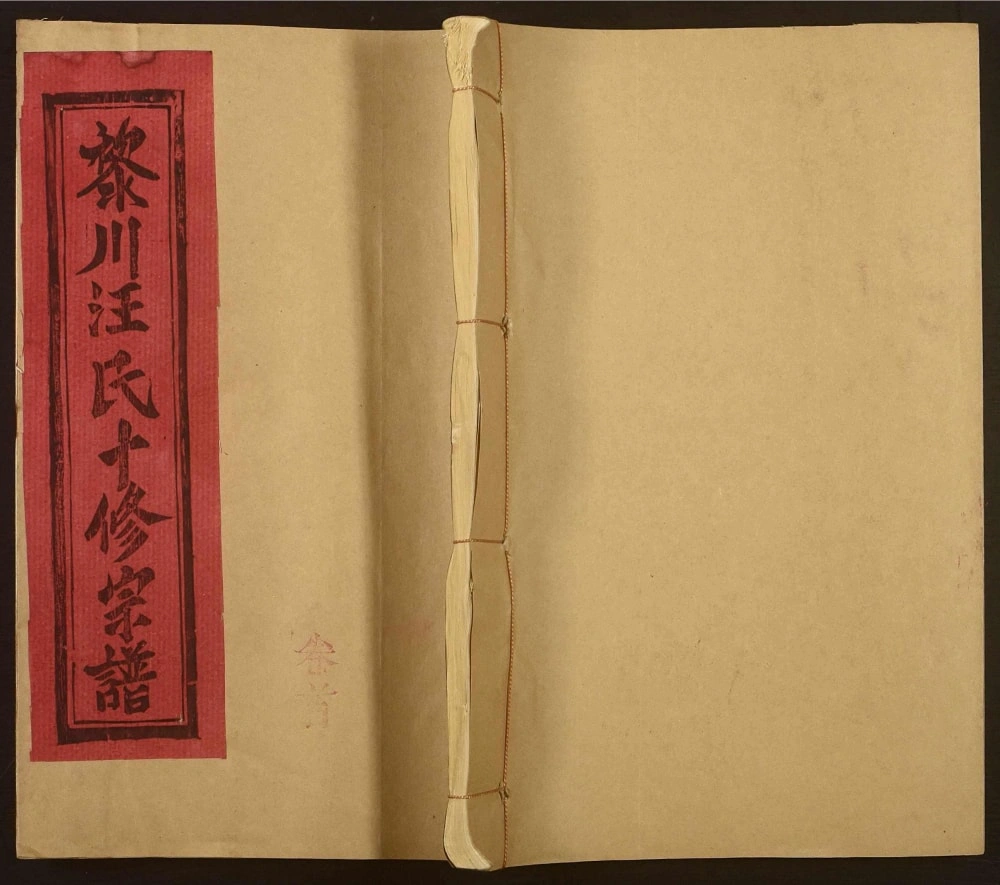 黎川汪氏十修宗譜
卷首